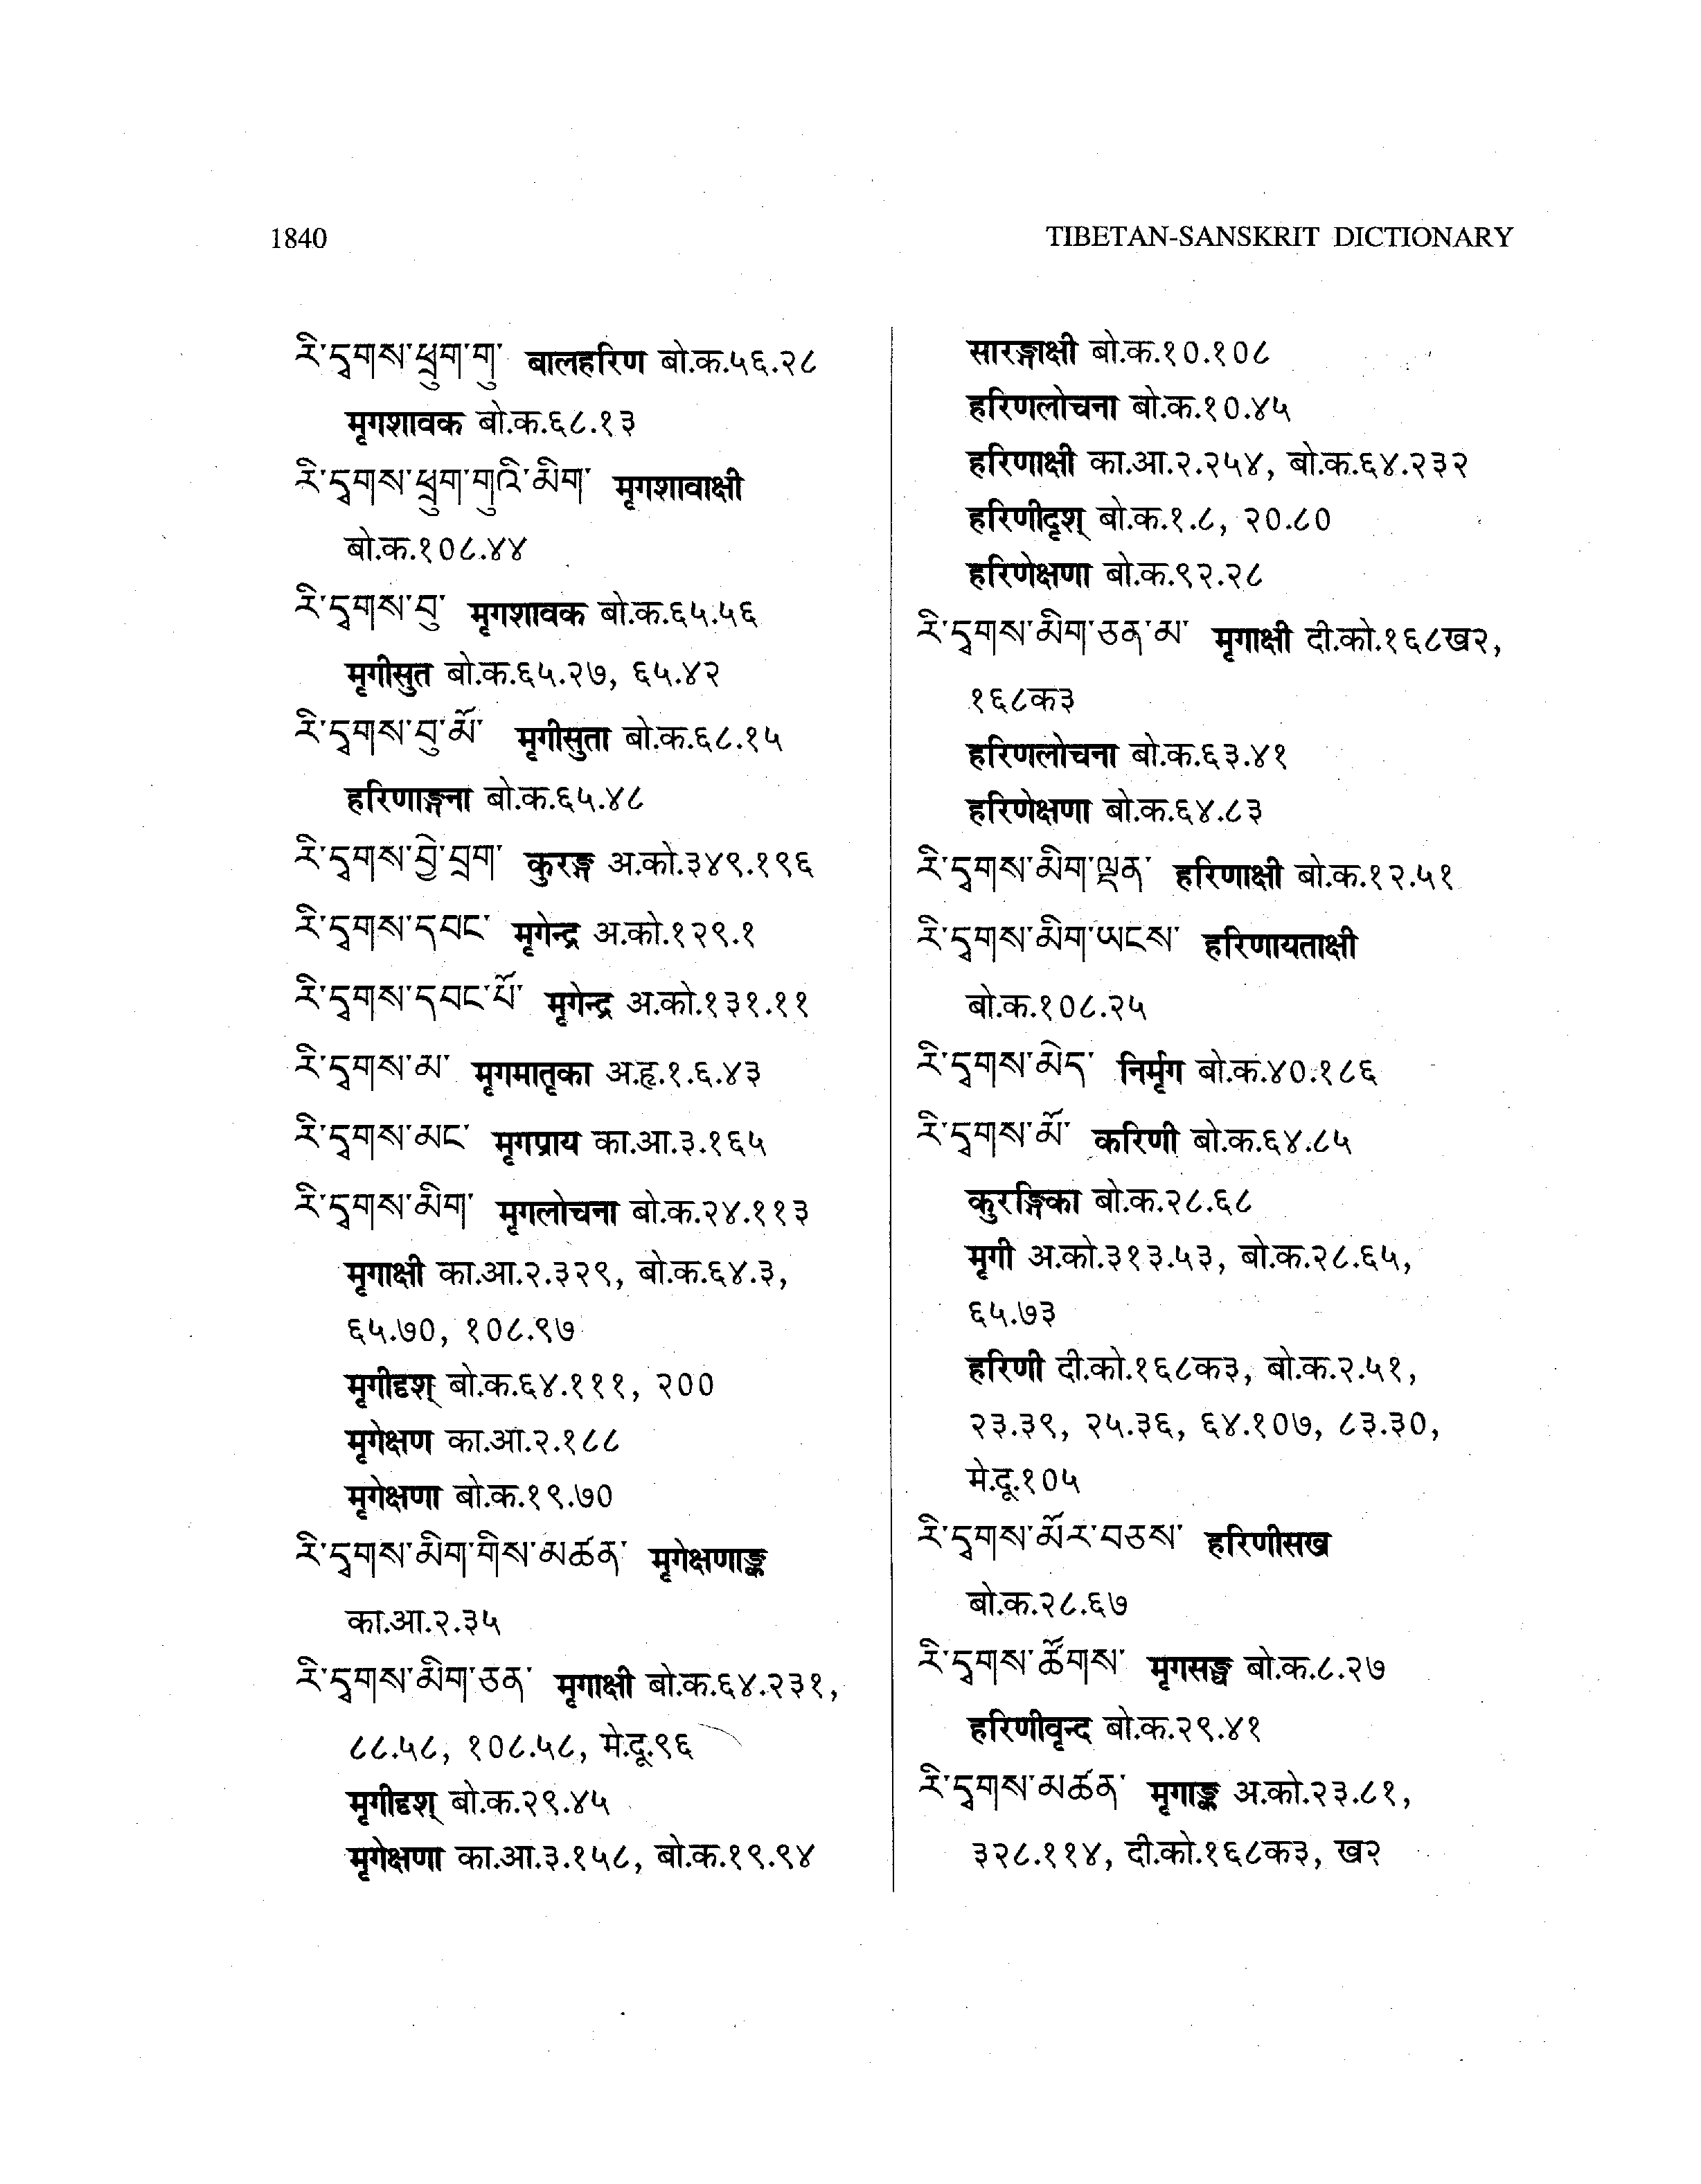 1840
TIBETAN-SANSKRIT DICTIONARY
རི་དྭགས་ཕྲུག་གུ་ बालहरिण बो.क.५६.२८
मृगशावक बो.क.६८.१३
རི་དྭགས་ཕྲུག་གུའི་མིག་ मृगशावाक्षी
बो.क.१०८.४४
རི་དྭགས་བུ་ मृगशावक बो.क.६५.५६
मृगीसुत बो.क.६५.२७, ६५.४२
རི་དྭགས་བུ་མོ་ मृगीसुता बो.क.६८.१५
हरिणाङ्गना बो.क.६५.४८
རི་དྭགས་བྱེ་བྲག་ कुरङ्ग अ.को.३४९.१९६
རི་དྭགས་དབང་ मृगेन्द्र अ.को.१२९.१
རི་དྭགས་དབང་པོ་ मृगेन्द्र अ.को.१३१.११
རི་དྭགས་མ་ मृगमातृका अ.हृ.१.६.४३
རི་དྭགས་མང་ मृगप्राय का.आ.३.१६५
རི་དྭགས་མིག་ मृगलोचना बो.क.२४.११३
मृगाक्षी का.आ.२.३२९, बो.क.६४.३,
६५.७०, १०८.९७
मृगीदृश् बो.क.६४.१११, २००
मृगेक्षण का.आ.२.१८८
मृगेक्षणा बो.क.१९.७०
རི་དྭགས་མིག་གིས་མཚན་ मृगेक्षणाङ्क
का.आ.२.३५
རི་དྭགས་མིག་ཅན་ मृगाक्षी बो.क.६४.२३१,
८८.५८, १०८.५८, मे.दू.९६
मृगीदृश् बो.क.२९.४५
मृगेक्षणा का.आ.३.१५८, बो.क.१९.९४
सारङ्गाक्षी बो.क.१०.१०८
हरिणलोचना बो.क.१०.४५
हरिणाक्षी का.आ.२.२५४, बो.क.६४.२३२
हरिणीदृश् बो.क.१.८, २०.८०
हरिणेक्षणा बो.क.९२.२८
རི་དྭགས་མིག་ཅན་མ་ मृगाक्षी दी.को.१६८ख२,
१६८क३
हरिणलोचना बो.क.६३.४१
हरिणेक्षणा बो.क.६४.८३
རི་དྭགས་མིག་ལྡན་ हरिणाक्षी बो.क.१२.५१
རི་དྭགས་མིག་ཡངས་ हरिणायताक्षी
बो.क.१०८.२५
རི་དྭགས་མེད་ निर्मृग बो.क.४०.१८६
རི་དྭགས་མོ་ करिणी बो.क.६४.८५
कुरङ्गिका बो.क.२८.६८
मृगी अ.को.३१३.५३, बो.क.२८.६५,
६५.७३
हरिणी दी.को.१६८क३, बो.क.२.५१,
२३.३९, २५.३६, ६४.१०७, ८३.३०,
मे.दू.१०५
རི་དྭགས་མོར་བཅས་ हरिणीसख
बो.क.२८.६७
རི་དྭགས་ཚོགས་ मृगसङ्घ बो.क.८.२७
हरिणीवृन्द बो.क.२९.४१
རི་དྭགས་མཚན་ मृगाङ्क अ.को.२३.८१,
३२८.११४, दी.को.१६८क३, ख२